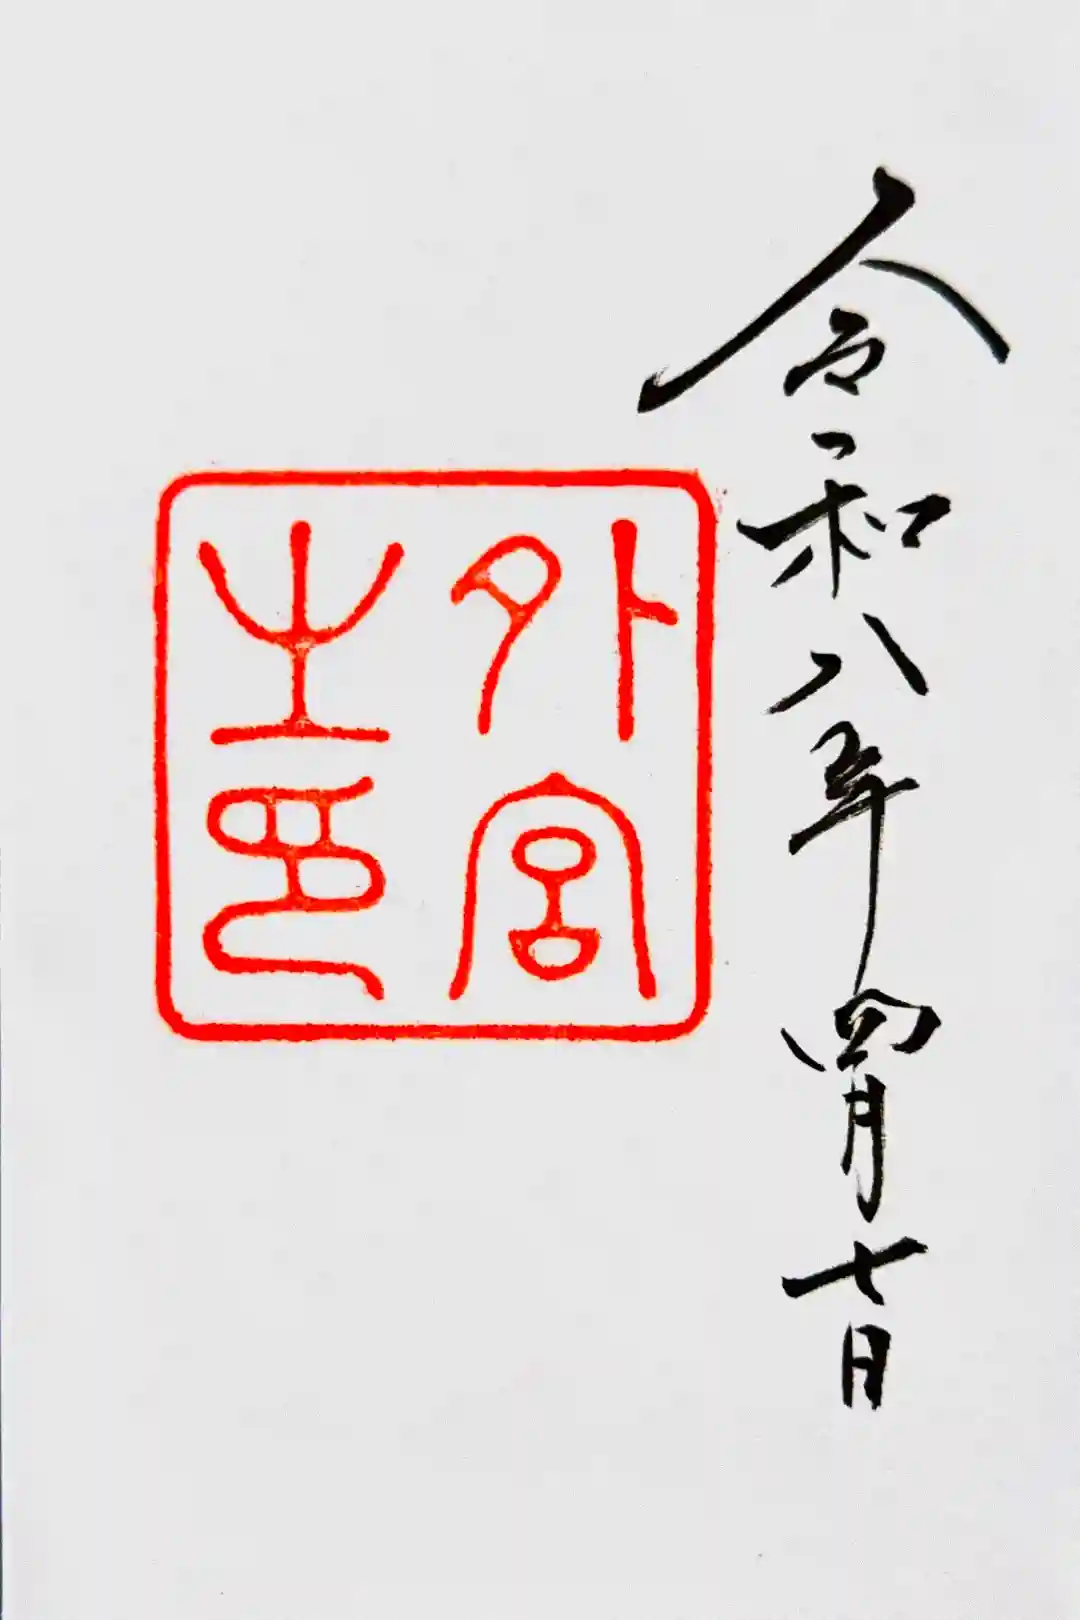 令和八年四月七日
外宮
之印